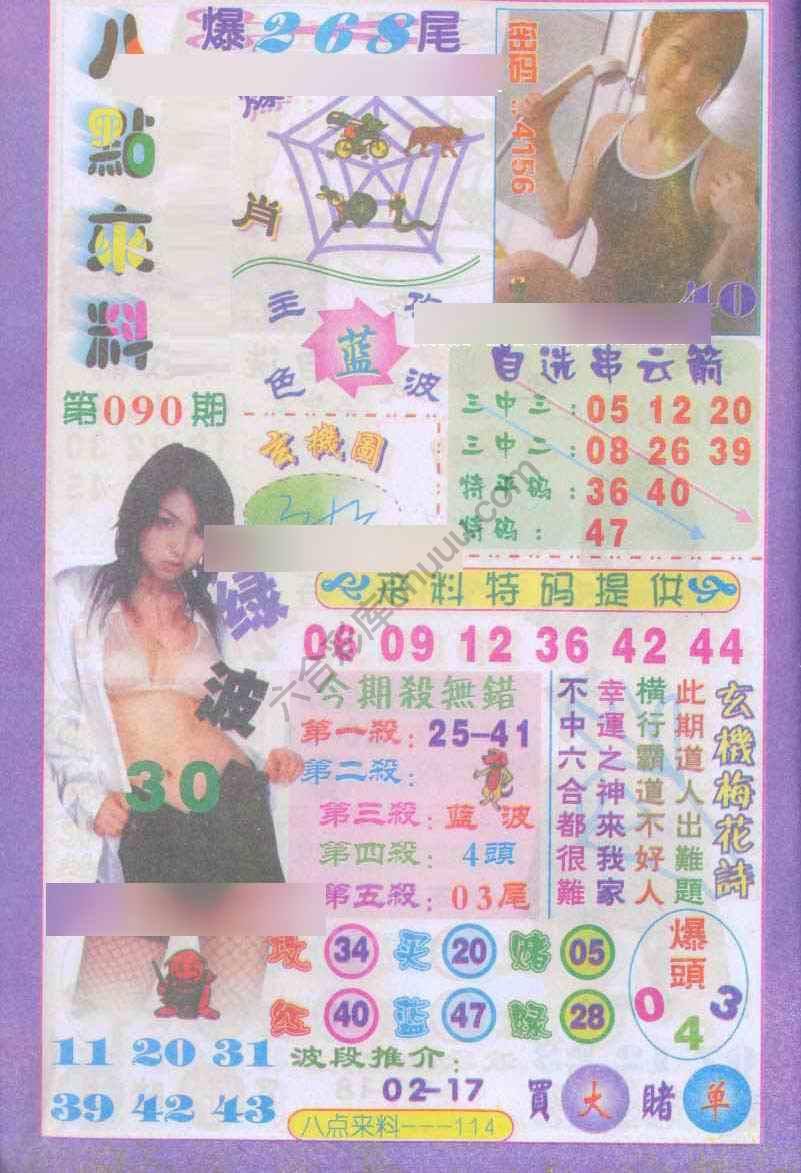 八點來料
爆268尾
密碼
4156
肖
40
主攻
色
蓝
波
自选串云箭
三中三:05 12 20
三中二:08 26 39
特平码:36 40
特码:47
第090期
玄機圖
来料特码提供
06 09 12 36 42 44
绿波
30
今期殺無錯
第一殺:25-41
第二殺:
第三殺:蓝波
第四殺:4頭
第五殺:03尾
玄機梅花詩
此期道人出難題
横行霸道不好人
幸運之神來我家
不中六合都很難
爆頭
0 4 3
攻 34 买 20 赌 05
红 40 蓝 47 绿 28
11 20 31
39 42 43
波段推介:
02-17
買 大 賭 单
八点来料---114
六合彩库